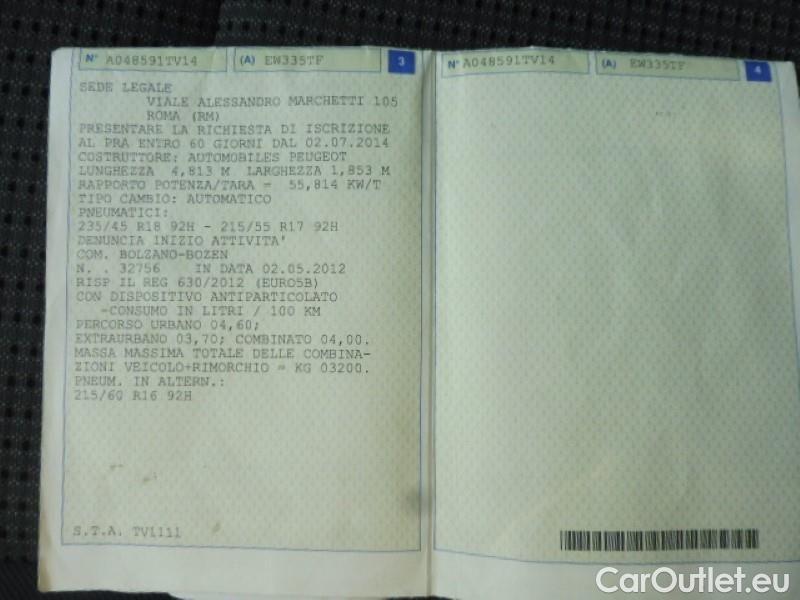 N° A048591TV14 (A) EW335TF 3
SEDE LEGALE
VIALE ALESSANDRO MARCHETTI 105
ROMA (RM)
PRESENTARE LA RICHIESTA DI ISCRIZIONE
AL PRA ENTRO 60 GIORNI DAL 02.07.2014
COSTRUTTORE: AUTOMOBILES PEUGEOT
LUNGHEZZA 4,813 M LARGHEZZA 1,853 M
RAPPORTO POTENZA/TARA = 55,814 KW/T
TIPO CAMBIO: AUTOMATICO
PNEUMATICI:
235/45 R18 92H - 215/55 R17 92H
DENUNCIA INIZIO ATTIVITA'
COM. BOLZANO-BOZEN
N. . 32756 IN DATA 02.05.2012
RISP IL REG 630/2012 (EURO5B)
CON DISPOSITIVO ANTIPARTICOLATO
-CONSUMO IN LITRI / 100 KM
PERCORSO URBANO 04,60;
EXTRAURBANO 03,70; COMBINATO 04,00.
MASSA MASSIMA TOTALE DELLE COMBINA-
ZIONI VEICOLO+RIMORCHIO = KG 03200.
PNEUM. IN ALTERN.:
215/60 R16 92H
S.T.A. TV1111
N° A048591TV14 (A) EW335TF 4
CarOutlet.eu